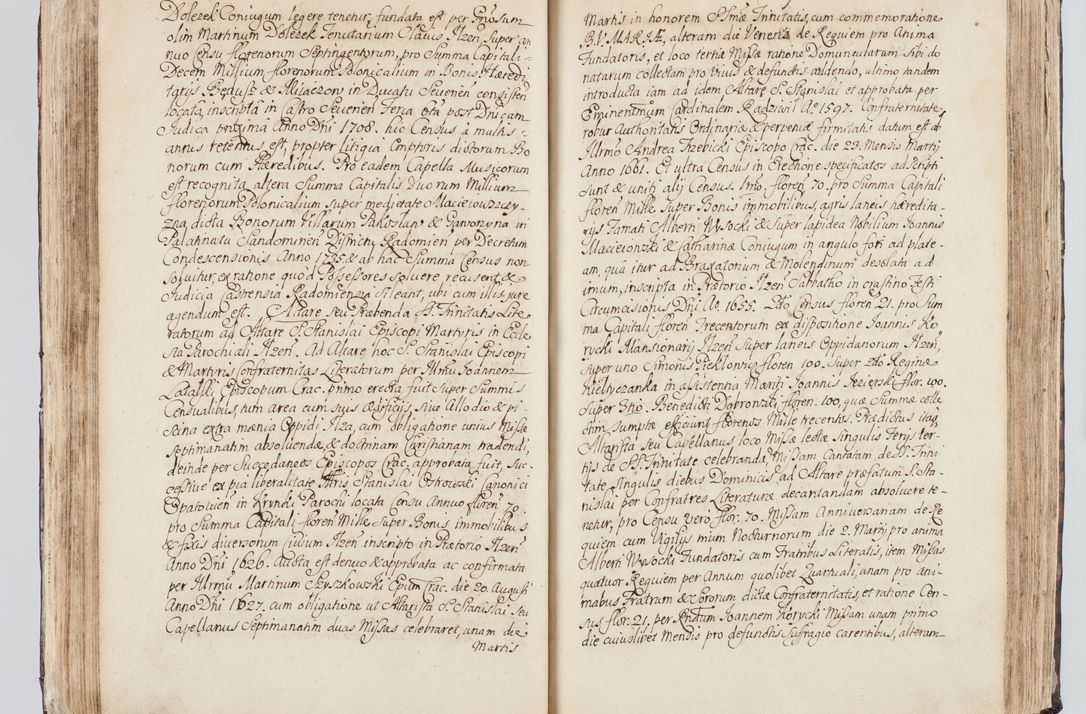 Dołęzek Coniugum legere tenetur, fundata est per Gnosum
olim Martinum Dołęzek Tenutarium Clavis Ilzen. super an
nuo Censu florenorum Septingentorum, pro Summa Capitali
Decem Millium florenorum Polonicalium in Bonis Hæredi
tarijs Będusz & Mijaczow in Ducatu Severien consisten
locata, inscripta in Castro Severien Feria 6ta post Dnicam
Judica proxima Anno Dni 1708. hic Census à multis
annis retentus est, propter litigia Emptoris dictorum Bo
norum cum Hæredibus. Pro eadem Capella Musicorum
est recognita altera Summa Capitalis Duorum Millium
florenorum Polonicalium super medietate Maciejowszczy
zna dicta Bonorum Villarum Pakosław & Gaworzyna in
Palatinatu Sandomirien Districtu Radomien per Decretum
Condescensionis Anno 1735. & ab hac Summa Census non
solvitur, ex ratione quod Possessores solvere recusent, &
Judicia Castrensia Radomiensia sileant, ubi cum illis jure
agendum est. Altare seu Præbenda SS. Trinitatis Lite
ratorum ad Altare S. Stanislai Episcopi Martyris in Eccle
sia Parochiali Ilzen. Ad Altare hoc S. Stanislai Episcopi
& Martyris Confraternitas Literatorum per Illrmu Joannem
Latalski Episcopum Crac. primo erecta fuit super Summis
Censualibus, tum area cum suis ædificijs, sive allodio & pi
scina extra mænia Oppidi Ilza, cum obligatione unius Missæ
septimanatim absolvendæ, & doctrinam Christianam tradendi,
deinde per Succedaneos Episcopos Crac. approbata fuit, Suc
cessive ex pia liberalitate Illris Stanislai Ostrowski Canonici
Opatovien in Krynki Parochi locata Censu Annuo floren 70.
pro Summa Capitali floren Mille super Bonis immobilibus
& fixis diversorum Civium Ilzen inscripto in Prætorio Ilzen
Anno Dni 1626. Aucta est denuo & approbata ac confirmata
per Illrmu Martinum Szyszkowski Epum Crac. die 20. Augusti
Anno Dni 1627. cum obligatione ut Altarista S. Stanislai seu
Capellanus Septimanatim duas Missas celebraret, unam die
Martis
Martis in honorem SSmæ Trinitatis, cum commemoratione
B.V. MARIÆ, alteram die Veneris de Requiem pro Anima
Fundatoris, et loco tertiæ Missæ ratione Domuncularum sibi do
natarum collectam pro vivis & defunctis addendo, ultimo tandem
introducta iam ad idem Altare S. Stanislai et approbata per
Eminentmum Cardinalem Radziwił Ao 1597. Confraternitate
robur Authoritatis Ordinariæ & perpetuæ firmitatis datum est ab
Illrmo Andrea Trzebicki Episcopo Crac. die 29. Mensis Martij
Anno 1661. Et ultra Census in Erectione specificatos adscripti
sunt & uniti alij Census. 1mo. floren 70. pro Summa Capitali
floren Mille super Bonis immobilibus, agris laneis hæredita
rijs Famati Alberti Wysocki & super lapidea Nobilium Joannis
Macieiowski & Catharinæ Coniugum in angulo fori ad plate
am, qua itur ad Braxatorium & Molendinum desolata ad
imum, inscripta in Prætorio Ilzen Sabbatho in crastino Festi
Circumcisionis Dni Ao. 1655. 2do Census floren 21. pro Sum
ma Capitali floren Trecentorum ex dispositione Joannis Ko
rycki Mansionarij Ilzen super laneis Oppidanorum Ilzen
super uno Simonis Pieklonis floren 100. super 2do Reginæ
Kiełtyczanka in assistentia Mariti Joannis floren. 100.
super 3tio. Benedicti Dobronski floren. 100. quæ Summæ colle
ctim sumptæ efficiunt florenos Mille trecentos. Prædictus itaq
Altarista seu Capellanus loco Missæ lectæ singulis Ferijs ter
tijs de SS. Trinitate celebrandæ, Missam Cantatam de SS. Trini
tate singulis diebus Dominicis ad Altare præfatum S. Sta
nislai per Confratres Literaturæ decantandam absolvere te
netur, pro Censu vero flor. 70. Missam Anniversariam de Re
quiem cum Vigilijs trium Nocturnorum die 2. Martij pro anima
Alberti Wysocki Fundatoris cum Fratribus Literatis, item Missas
quatuor Requiem per Annum quolibet Quartuali, unam pro ani
mabus Fratrum & Sororum dictæ Confraternitatis, et ratione Cen
sus flor. 21. per Rndum Joannem Korycki Missam unam primo
die cuiuslibet Mensis pro defunctis suffragio carentibus, alteram